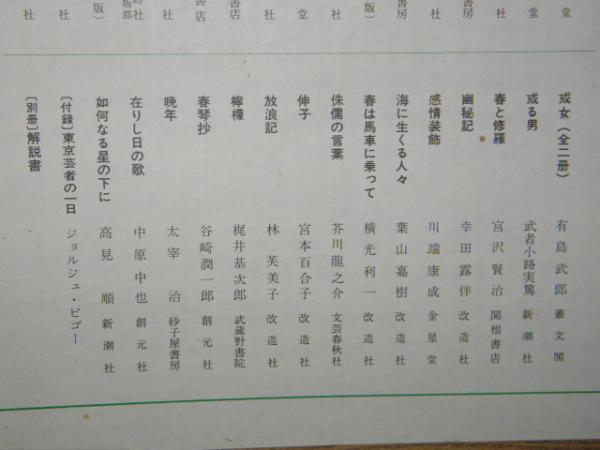 或女（全二册） 有島武郎 叢文閣
或る男 武者小路実篤 新潮社
春と修羅 宮沢賢治 関根書店
幽秘記 幸田露伴 改造社
感情装飾 川端康成 金星堂
海に生くる人々 葉山嘉樹 改造社
春は馬車に乗って 横光利一 改造社
侏儒の言葉 芥川龍之介 文芸春秋社
伸子 宮本百合子 改造社
放浪記 林芙美子 改造社
檸檬 梶井基次郎 武蔵野書院
春琴抄 谷崎潤一郎 創元社
晩年 太宰治 砂子屋書房
在りし日の歌 中原中也 創元社
如何なる星の下に 高見順 新潮社
〔付録〕東京芸者の一日 ジョルジュ・ビゴー
〔別冊〕解説書
堂
堂
社
書房
社
書房
版）
社
社
書店
書店
社
版部
版）
社
社